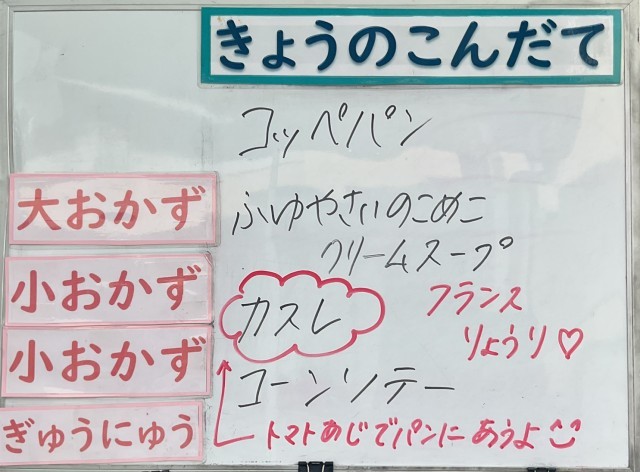 きょうのこんだて
コッペパン
大おかず
ふゆやさいのこめこ
クリームスープ
小おかず
カスレ
フランス
りょうり♡
小おかず
コーンソテー
ぎゅうにゅう
トマトあじでパンにあうよ